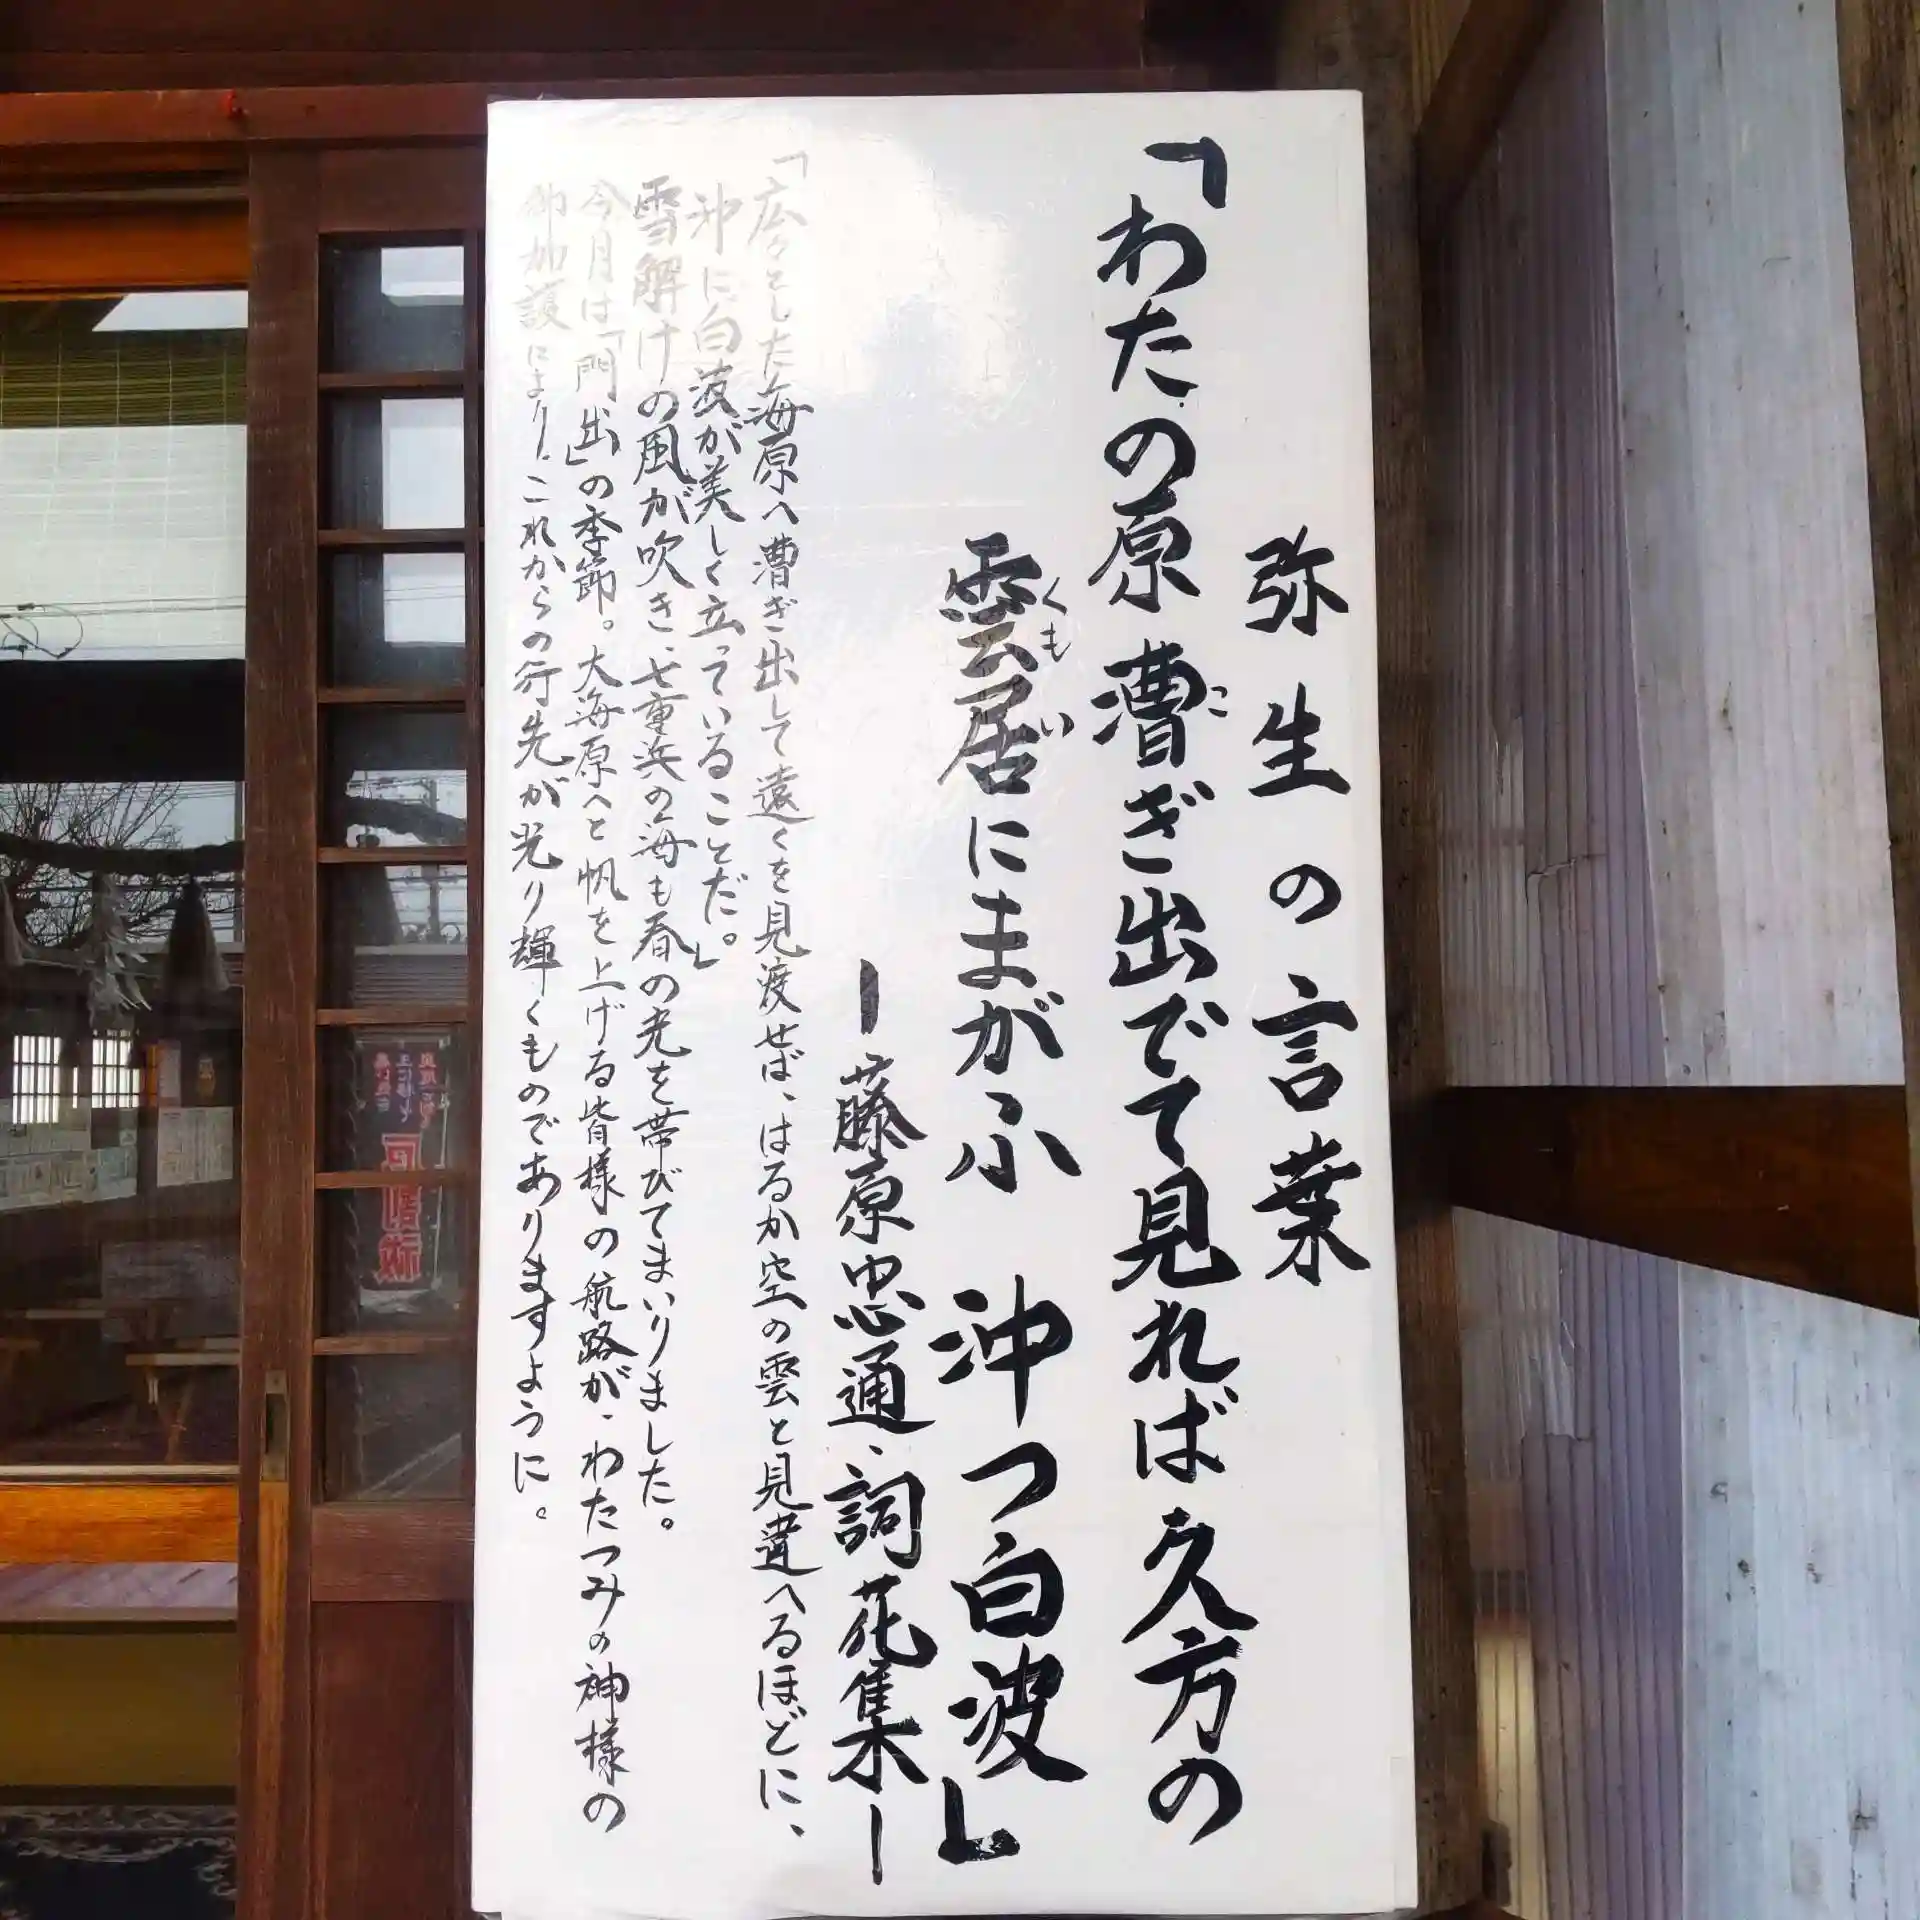 弥生の言葉
「わたの原漕ぎ出でて見れば久方の
雲居にまがふ 沖つ白波」
ー藤原忠通、詞花集ー
「広々とした海原へ漕ぎ出して遠くを見渡せば、はるか空の雲と見違へるほどに、
沖に白波が美しく立っていることだ。」
雪解けの風が吹き、七重浜の海も春の光を帯びてまいりました。
今月は「門出」の季節。大海原へと帆を上げる皆様の航路が、わたつみの神様の
御加護により、これからの行先が光り輝くものでありますように。
こ
くもい